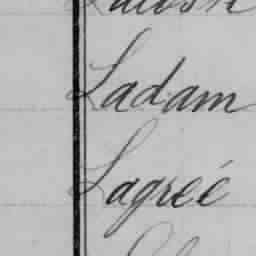 Ladam
Lagreé